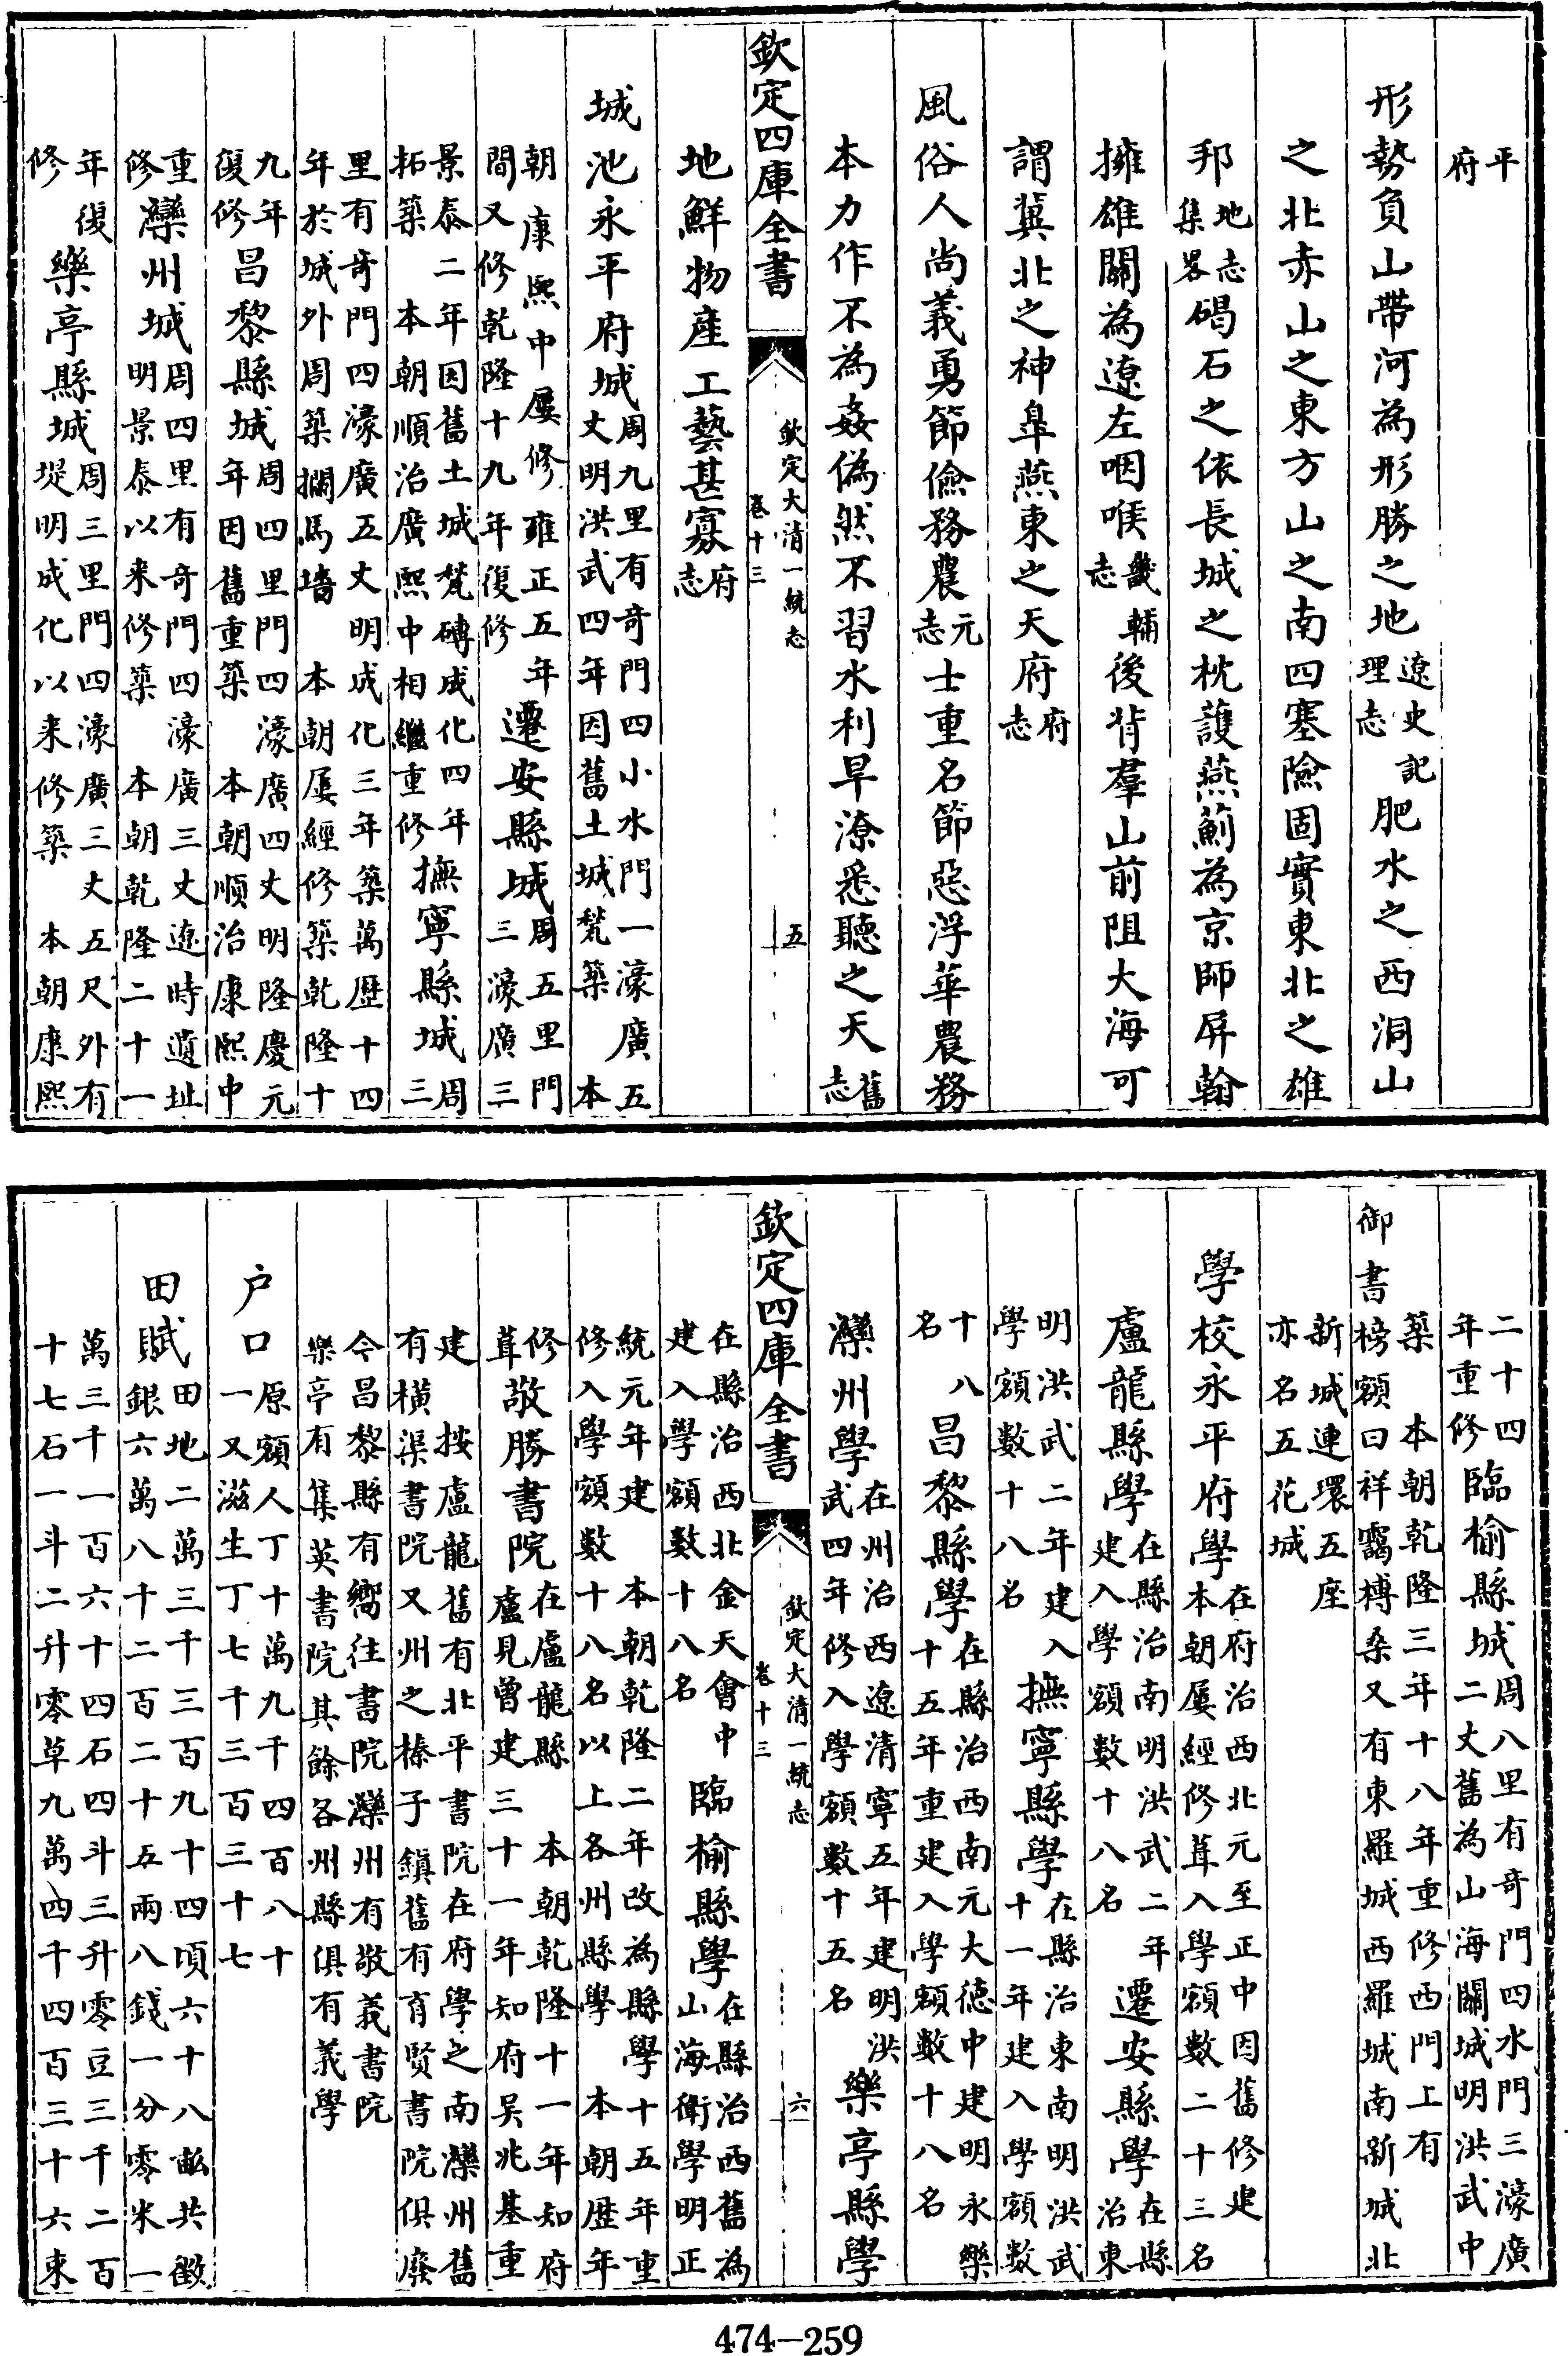 平府
形勢負山帶河為形勝之地遼史記理志肥水之西洞山
之北赤山之東方山之南四塞險固實東北之雄
邦地志集畧碣石之依長城之枕護燕薊為京師屏翰
擁雄關為遼左咽喉畿輔志後背羣山前阻大海可
謂冀北之神臯燕東之天府府志
風俗人尚義勇節儉務農元志士重名節惡浮華農務
本力作不為姦偽然不習水利旱潦悉聽之天舊志
欽定四庫全書 欽定大清一統志 卷十三 五
地鮮物産工藝甚寡府志
城池永平府城周九里有奇門四小水門一濠廣五丈明洪武四年因舊土城甃築 本
朝康熙中屢修雍正五年間又修乾隆十九年復修遷安縣城周五里門三濠廣三
景泰二年因舊土城甃磚成化四年拓築 本朝順治廣熙中相繼重修撫寧縣城周三
里有奇門四濠廣五丈明成化三年築萬歴十四年於城外周築攔馬墻 本朝屢經修築乾隆十
九年復修昌黎縣城周四里門四濠廣四丈明隆慶元年因舊重築 本朝順治康熙中
重修灤州城周四里有奇門四濠廣三丈遼時遺址明景泰以来修築 本朝乾隆二十一
年復修樂亭縣城周三里門四濠廣三丈五尺外有堤明成化以来修築 本朝康熙
二十四年重修臨榆縣城周八里有奇門四水門三濠廣二丈舊為山海關城明洪武中
築 本朝乾隆三年十八年重修西門上有御書榜額曰祥靄榑桑又有東羅城西羅城南新城北
新城連環五座亦名五花城
學校永平府學在府治西北元至正中因舊修建本朝屢經修葺入學額數二十三名
盧龍縣學在縣治南明洪武二年建入學額數十八名遷安縣學在縣治東
明洪武二年建入學額數十八名撫寧縣學在縣治東南明洪武十一年建入學額數
十八名昌黎縣學在縣治西南元大德中建明永樂十五年重建入學額數十八名
灤州學在州治西遼清寧五年建明洪武四年修入學額數十五名樂亭縣學
欽定四庫全書 欽定大清一統志 卷十三 六
在縣治西北金天會中建入學額數十八名臨榆縣學在縣治西舊為山海衛學明正
統元年建 本朝乾隆二年改為縣學十五年重修入學額數十八名以上各州縣學 本朝歴年
修葺敬勝書院在盧龍縣 本朝乾隆十一年知府盧見曾建三十一年知府吳兆基重
建 按盧龍舊有北平書院在府學之南灤州舊有橫渠書院又州之榛子鎮舊有育賢書院俱廢
今昌黎縣有嚮往書院灤州有敬義書院樂亭有集英書院其餘各州縣俱有義學
户口原額人丁十萬九千四百八十一又滋生丁七千三百三十七
田賦田地二萬三千三百九十四頃六十八畝共徵銀六萬八十二百二十五兩八錢一分零米一
萬三千一百六十四石四斗三升零豆三千二百十七石一斗二升零草九萬四千四百三十六束
474-259